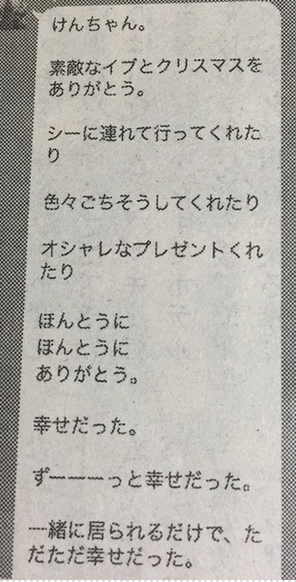 けんちゃん。
素敵なイブとクリスマスを
ありがとう。
シーに連れて行ってくれた
り
色々ごちそうしてくれたり
オシャレなプレゼントくれ
たり
ほんとうに
ほんとうに
ありがとう。
幸せだった。
ずーーーっと幸せだった。
一緒に居られるだけで、た
だただ幸せだった。